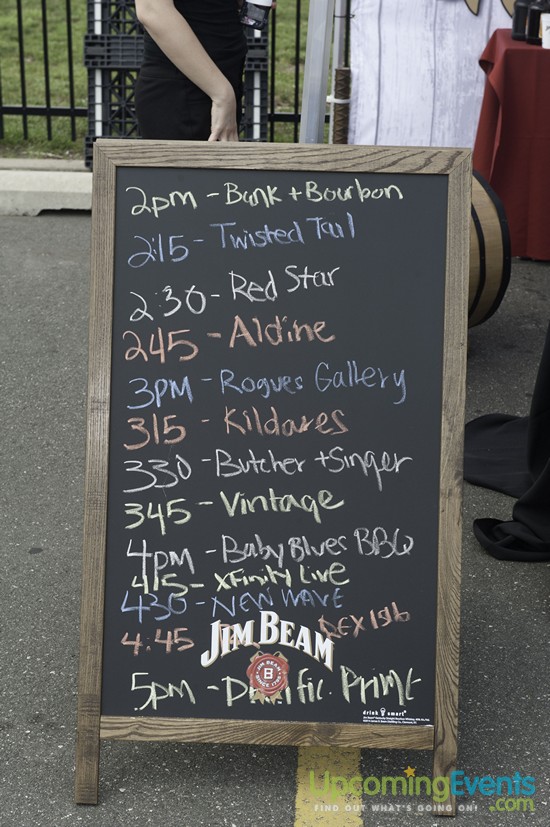 2pm - Bank + Bourbon
2:15 - Twisted Tail
2:30 - Red Star
245 - Aldine
3PM - Rogues Gallery
315 - Kildares
330 - Butcher + Singer
345 - Vintage
4PM - Baby Blues BBQ
415 - Xfinity Live
430 - NEW WAVE
4:45 REX 1516
JIM BEAM
B
5pm - Prime
drink smart
UpcomingEvents
.com
FIND OUT WHAT'S GOING ON!